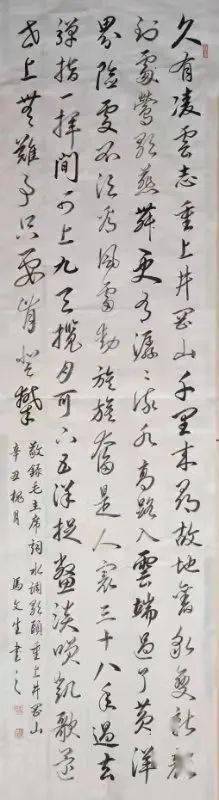 久有凌雲志重上井岡山千里来尋故地舊貌變新顔
到處鶯歌燕舞更有潺〻流水高路入雲端過了黄洋
界險處不須看風雷動旌旗奮是人寰三十八年過去
彈指一揮間可上九天攬月可下五洋捉鱉談笑凱歌還
世上無難事只要肯登攀
敬録毛主席詞水调歌頭重上井岡山
辛丑桃月 馬文生書之